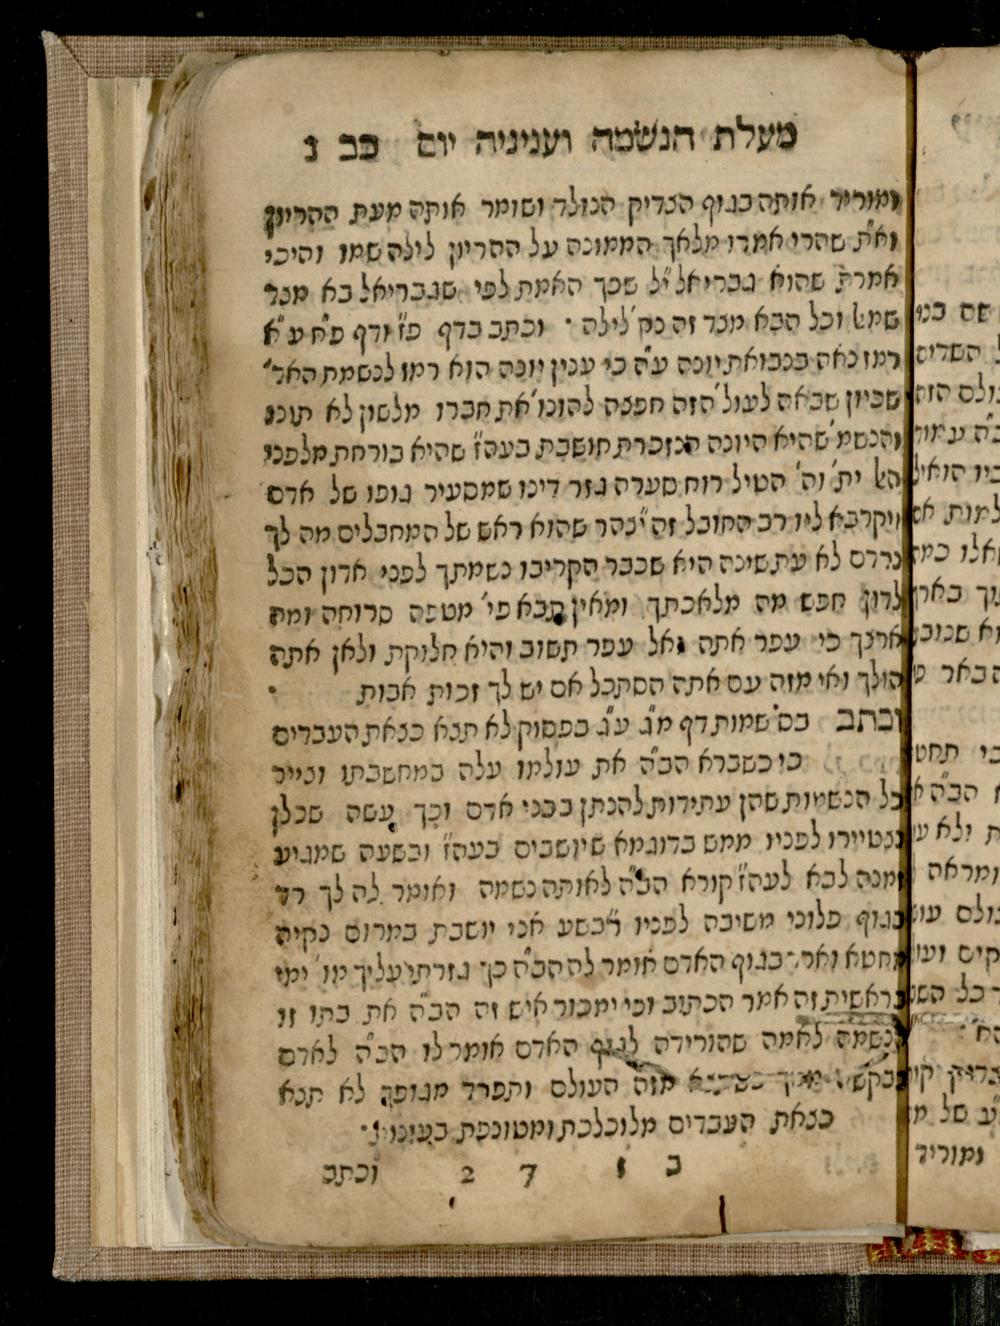 מעלת הנשמה ועניניה יום כב נ
ומוריד אותה בגוף הצדיק הנולד ושומר אותה מעת ההריון
וא"ת שהרי אמרו מלאך הממונה על ההריון לילה שמו והיכי
אמרת שהוא גבריאל י"ל שכך האמת לפי שגבריאל בא מצד
שמא' וכל הבא מצד זה נק' לילה · וכתב בדף פ"ז ודף פ"ח ע"א
רמז נאה בנבואת יונה ע"ה כי ענין יונה הוא רמז לנשמת האד'
שכיון שבאה לעול' הזה חפצה להונו' את חברו מלשון לא תונו
והנשמ' שהיא היונה הנזכרת חושבת בעה"ז שהיא בורחת מלפני
הש' ית' וה' הטיל רוח סערה גזר דינו שמסעיר גופו של אדם
ויקרב אליו רב החובל זה יצהר שהוא ראש של המחבלים מה לך
נרדם לא עת שינה היא שכבר הקריבו נשמתך לפני אדון הכל
לדון חפש מה מלאכתך ומאין תבא פי' מטפה סרוחה ומה
ארצך כי עפר אתה ואל עפר תשוב והיא חלוקת ולאן אתה
הולך ואי מזה עם אתה הסתכל אם יש לך זכות אבות ·
וכתב בס' שמות דף מ"ג ע"ג בפסוק לא תצא כצאת העבדים
כי כשברא הב"ה את עולמו עלה במחשבתו וצייר
כל הנשמות שהן עתידות להנתן בבני אדם וכך עשה שכלן
נצטיירו לפניו ממש בדוגמא שיושבים בעה"ז ובשעה שמגיע
זמנה לבא לעה"ז קורא הב"ה לאותה נשמה ואומר לה לך רד
בגוף פלוני משיבה לפניו רבש"ע אני יושבת במרום נקיה
מחטא ואר' בגוף האדם אומר לה הב"ה כך גזרתי עליך מו' ימי
בראשית זה אמר הכתוב וכי ימכור איש זה הב"ה את בתו זו
הנשמה לאמה שהורידה לגוף האדם אומר לו הב"ה לאדם
בבקשה ממך מזה העולם ותפרד מגופך לא תצא
כצאת העבדים מלוכלכת ומטונפת בעונו'·
ב ז 7 2 וכתב